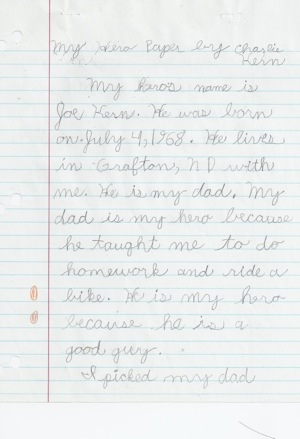 My Hero Paper by Charlie
Kern
My hero's name is
Joe Kern. He was born
on July 4, 1968. He lives
in Grafton, ND with
me. He is my dad. My
dad is my hero because
he taught me to do
homework and ride a
bike. He is my hero
because he is a
good guy.
I picked my dad